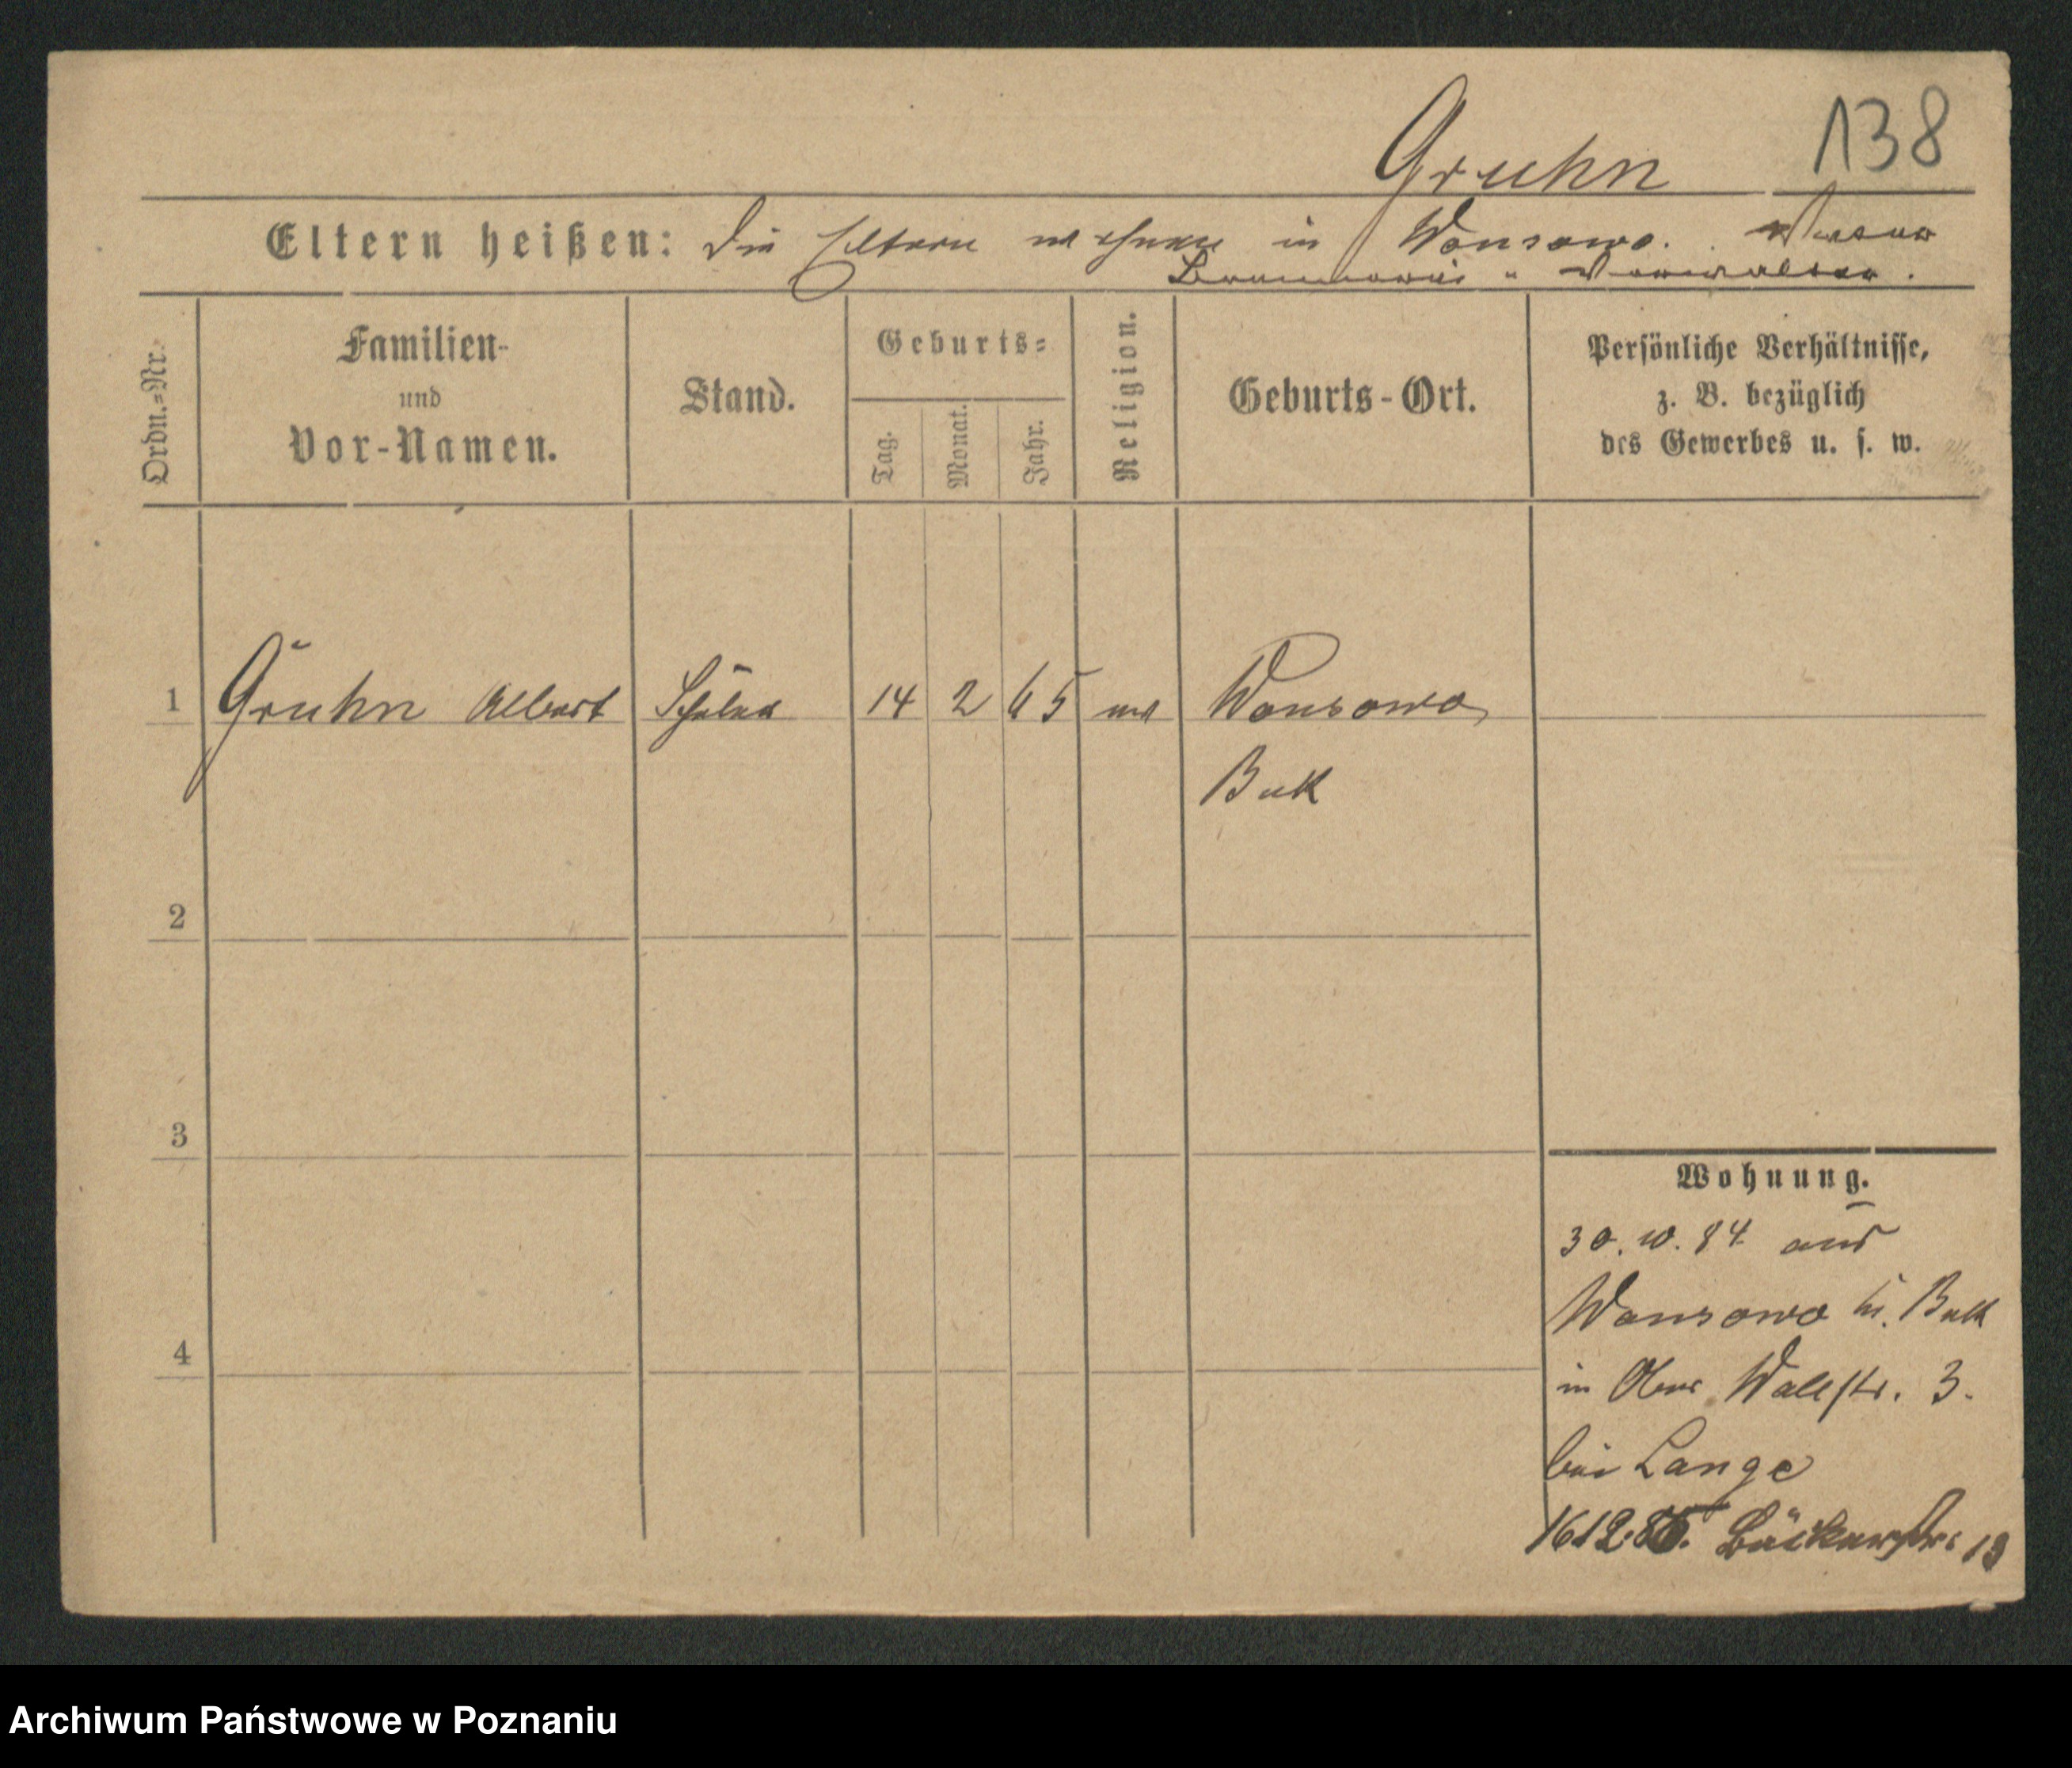 138
Gruhn
Eltern heißen: Die Eltern wohnen in Wonsowo. Vater
Brennerei - Verwalter.
Ordn.=Nr.
Familien-
und
Vor-Namen.
Stand.
Geburts=
Tag.
Monat.
Jahr.
Religion.
Geburts-Ort.
Persönliche Verhältnisse,
z. B. bezüglich
des Gewerbes u. s. w.
1 Gruhn Albert Schüler 14 2 65 Wonsowo
Buk
2
3
4
Wohnung.
30. 10. 84 aus
Wonsowo Buk
in Ober Wallstr. 3.
bei Lange
16 12 Bäckerstr. 13
Archiwum Państwowe w Poznaniu